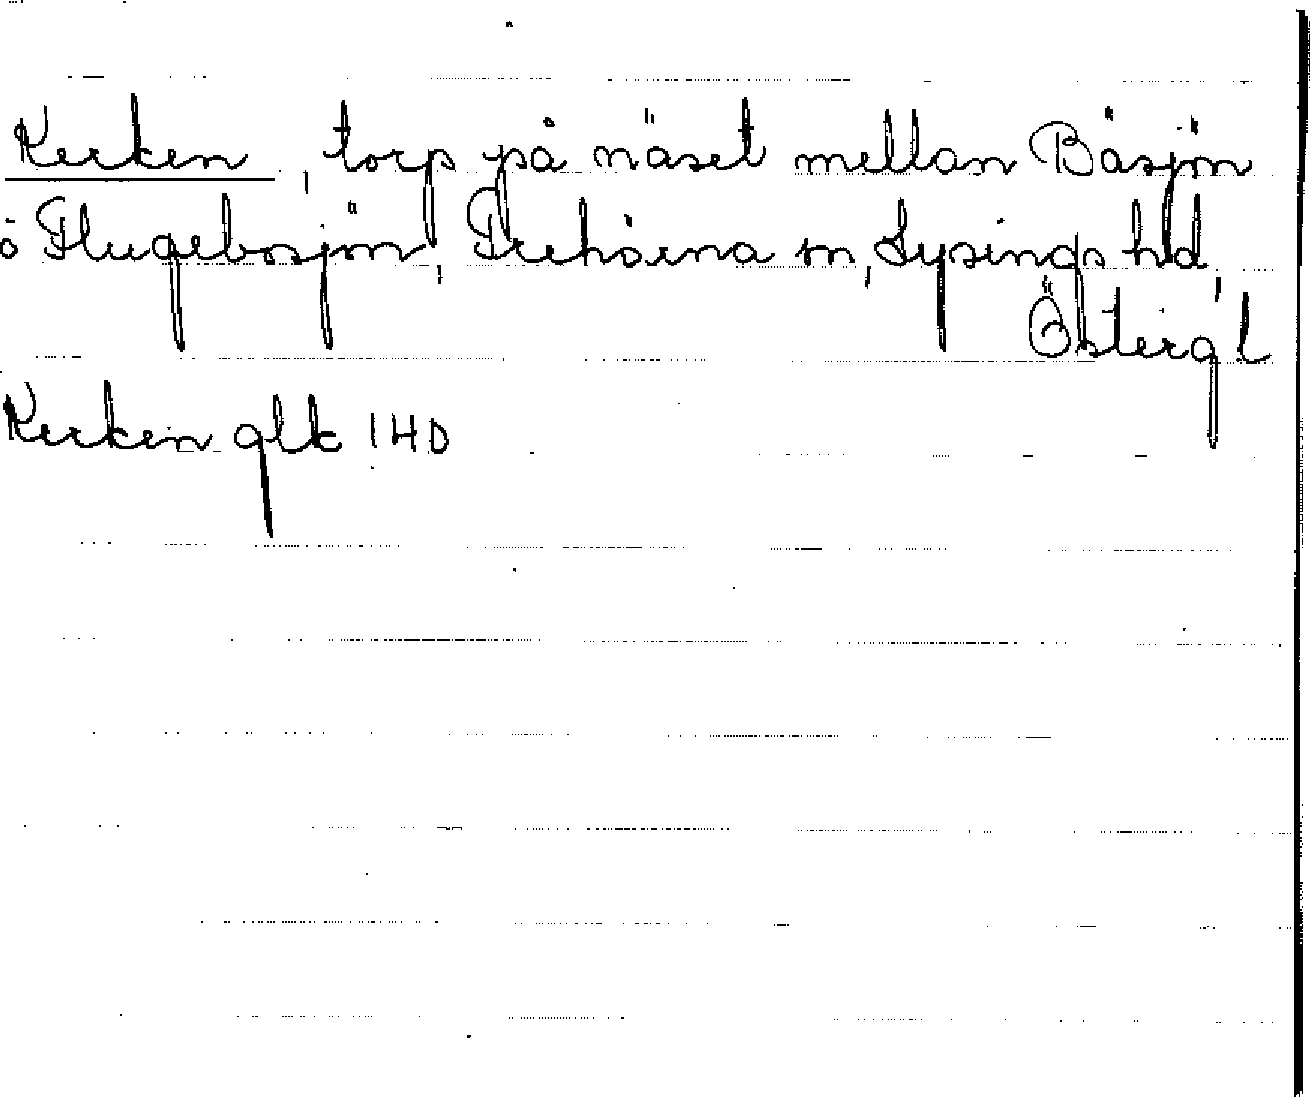 Kerken, torp på näset mellan Bäsjön
ö Flugebosjön, Trehörna sn, Lysings hd,
Östergl
Kerken glk 1HD